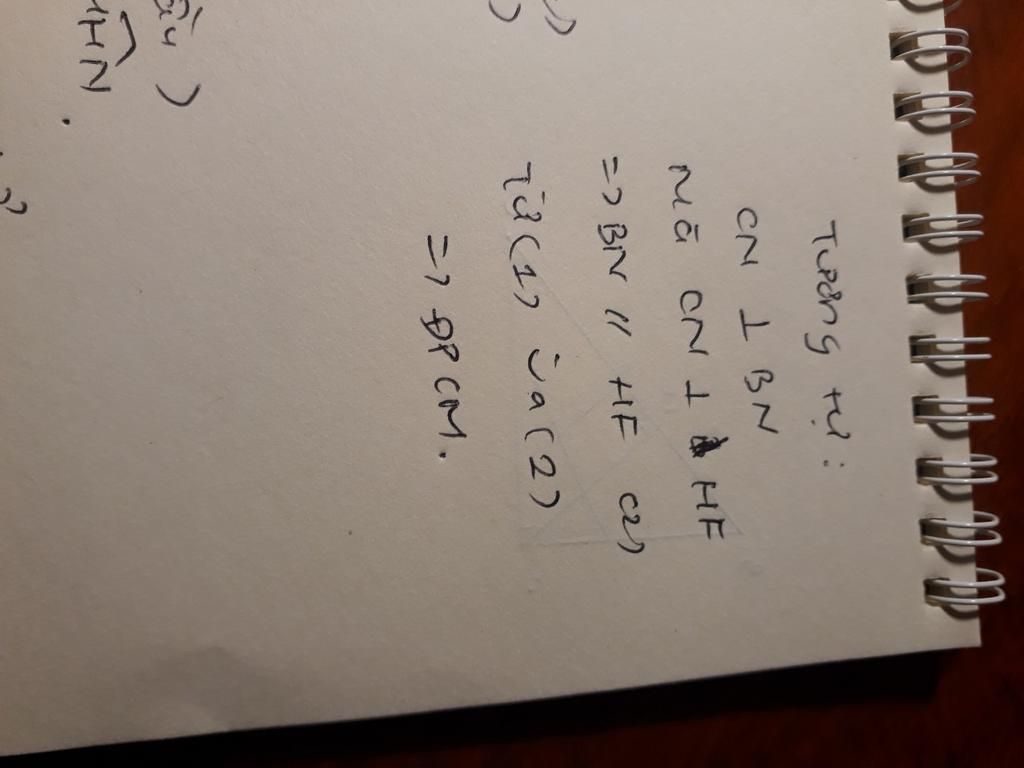 Tương tự:
CN ⊥ BN
Mà CN ⊥ HF
=> BN // HF (2)
Từ (1) và (2)
=> ĐPCM.
HN